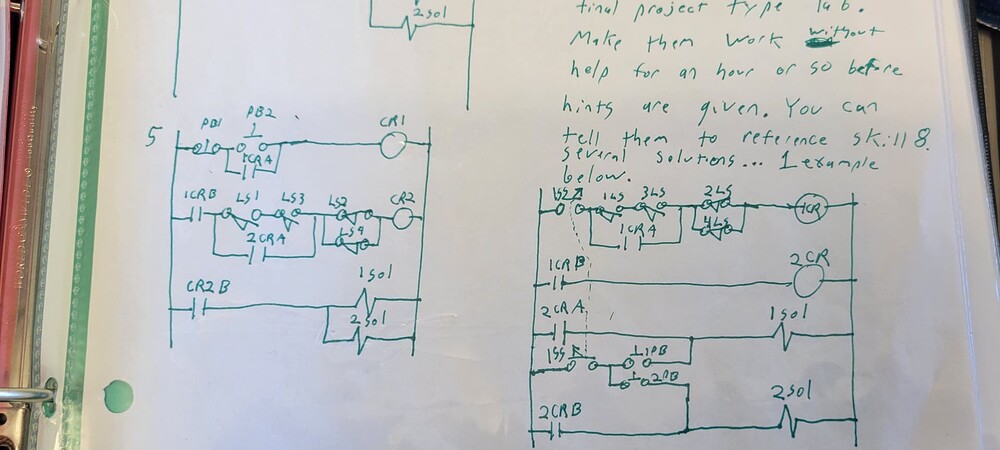 2 sol
final project type lab.
Make them work without
help for an hour or so before
hints are given. You can
tell them to reference skill 8.
several solutions... 1 example
below.
5
PB1 PB2 CR1
1CRA
1CRB LS1 LS3 LS2 CR2
2CRA LS4
CR2B 1sol
2sol
1SS 1LS 3LS 2LS 1CR
1CRA 4LS
1CRB 2CR
2CRA 1sol
1SS 1PB
2PB
2CRB 2sol